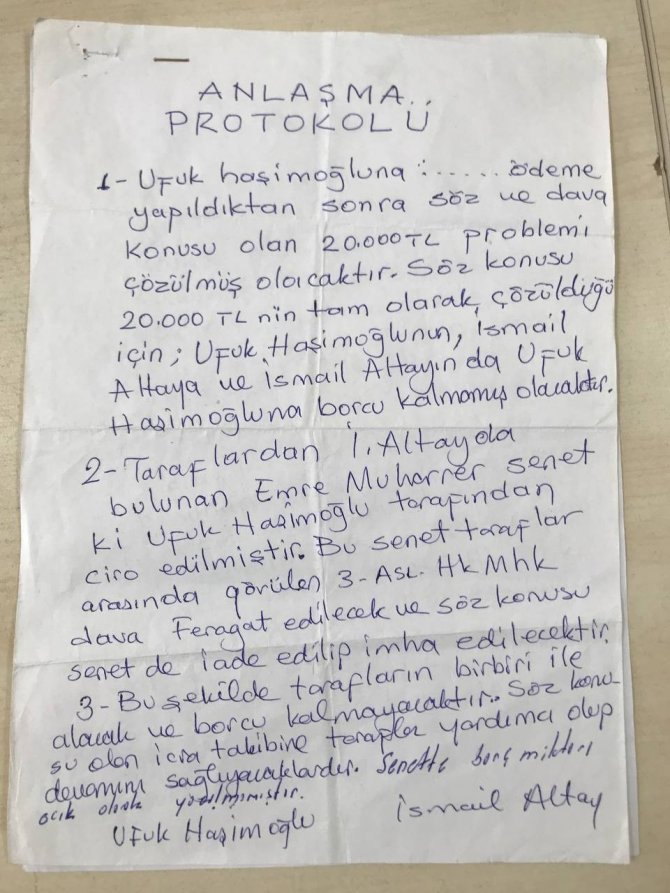 ANLAŞMA
PROTOKOLÜ
1- Ufuk haşimoğluna :...... ödeme
yapıldıktan sonra söz ve dava
konusu olan 20.000TL problemi
çözülmüş olacaktır. Söz konusu
20.000 TL nin tam olarak çözüldüğü
için; Ufuk Haşimoğlunun, ismail
Altaya ve ismail Altayında Ufuk
Haşimoğluna borcu kalmamış olacaktır.
2- Taraflardan İ. Altayda
bulunan Emre Muharrer senet
ki Ufuk Haşimoğlu tarafından
ciro edilmiştir. Bu senet taraflar
arasında görülen 3- Asl. Hk Mhk
dava Feragat edilecek ve söz konusu
senet de iade edilip imha edilecektir.
3- Bu şekilde tarafların birbiri ile
alacak ve borcu kalmayacaktır. Söz konu
su olan icra takibine taraflar yardımcı olup
devamını sağlıyacaklardır. Senette borç miktarı
açık olarak yazılmamıştır.
Ufuk Haşimoğlu
ismail Altay